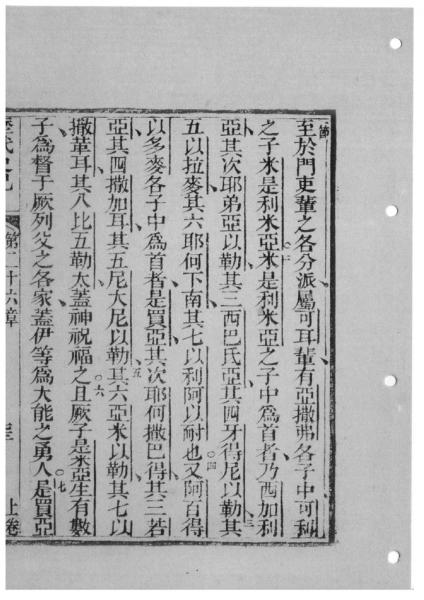 節
至於門吏輩之各分派屬可耳輩有亞撒弗各子中可利
之子米是利米亞米是利米亞之子中為首者乃西加利
○二
亞其次耶弟亞以勒其三西巴氐亞其四牙得尼以勒其
○三
五以拉麥其六耶何下南其七以利阿以耐也又阿百得
○四
以多麥各子中為首者是買亞其次耶何撒巴得其三若
亞其四撒加耳其五尼大尼以勒其六亞米以勒其七以
○五
撒革耳其八比五勒太蓋神祝福之且厥子是米亞生有數
○六
子為督于厥列父之各家蓋伊等為大能之勇人是買亞
○七
第二十六章 上卷